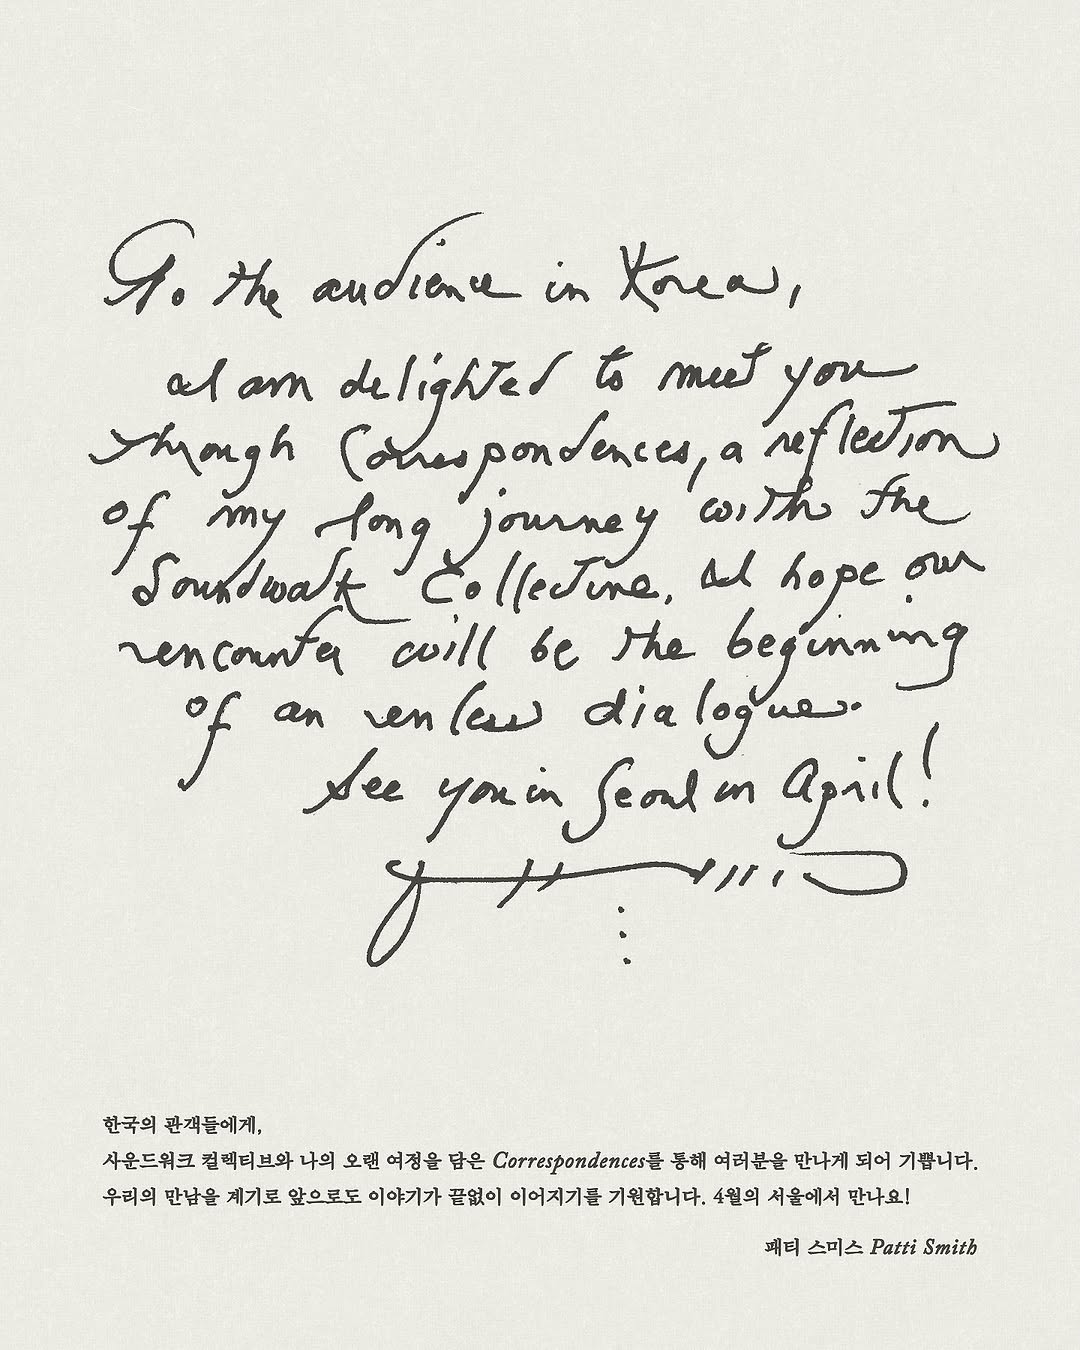 To the audience in Korea,
I am delighted to meet you
through Correspondences, a reflection
of my long journey with the
Soundwalk Collective. I hope our
rencounter will be the beginning
of an dialogue.
See you in Seoul in April!
한국의 관객들에게,
사운드워크 컬렉티브와 나의 오랜 여정을 담은 Correspondences를 통해 여러분을 만나게 되어 기쁩니다.
우리의 만남을 계기로 앞으로도 이야기가 끝없이 이어지기를 기원합니다. 4월의 서울에서 만나요!
패티 스미스 Patti Smith